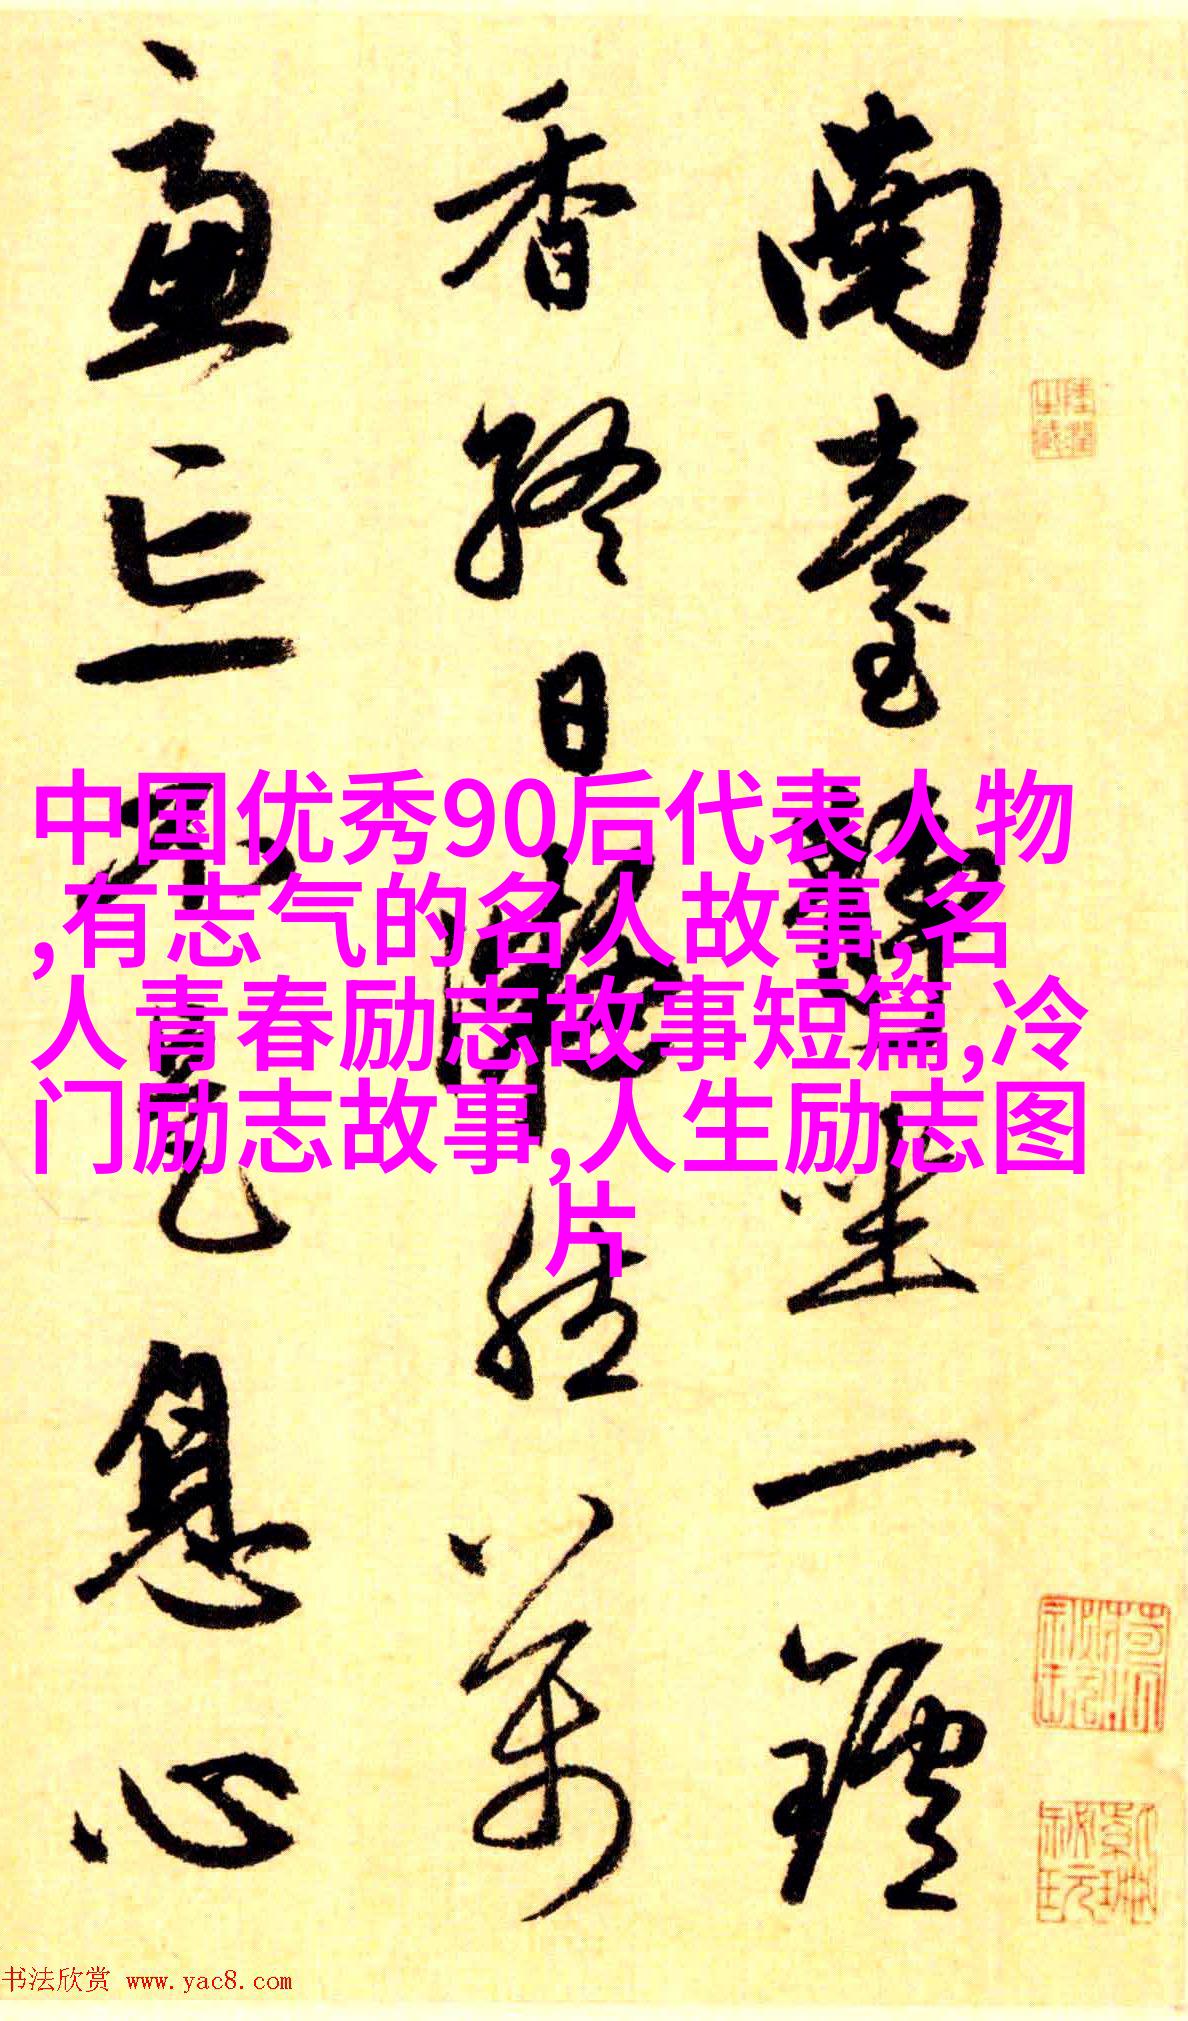 南臺靜坐一鑪
香終日凝然萬
慮亡不是息心
中国优秀90后代表人物
,有志气的名人故事,名
人青春励志故事短篇,冷
门励志故事,人生励志图
片
陸潤之藏
书法欣赏 www.yac8.com